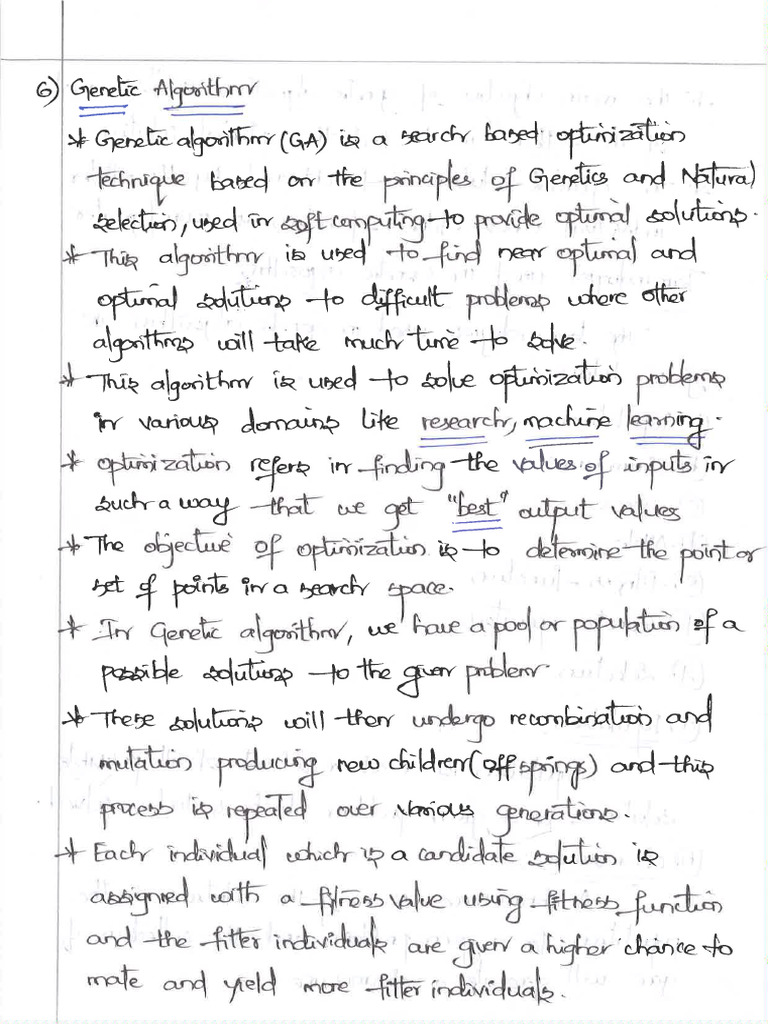 6) Genetic Algorithm
* Genetic algorithm (GA) is a search based optimization
technique based on the principles of Genetics and Natural
selection, used in soft computing to provide optimal solutions.
* This algorithm is used to find near optimal and
optimal solutions to difficult problems where other
algorithms will take much time to solve.
* This algorithm is used to solve optimization problems
in various domains like research, machine learning.
* optimization refers in finding the values of inputs in
such a way that we get "best" output values
* The objective of optimization is to determine the point or
set of points in a search space.
* In Genetic algorithm, we have a pool or population of a
possible solutions to the given problem.
* These solutions will then undergo recombination and
mutation producing new children (off springs) and this
process is repeated over various generations.
* Each individual which is a candidate solution is
assigned with a fitness value using fitness function
and the fitter individuals are given a higher chance to
mate and yield more fitter individuals.